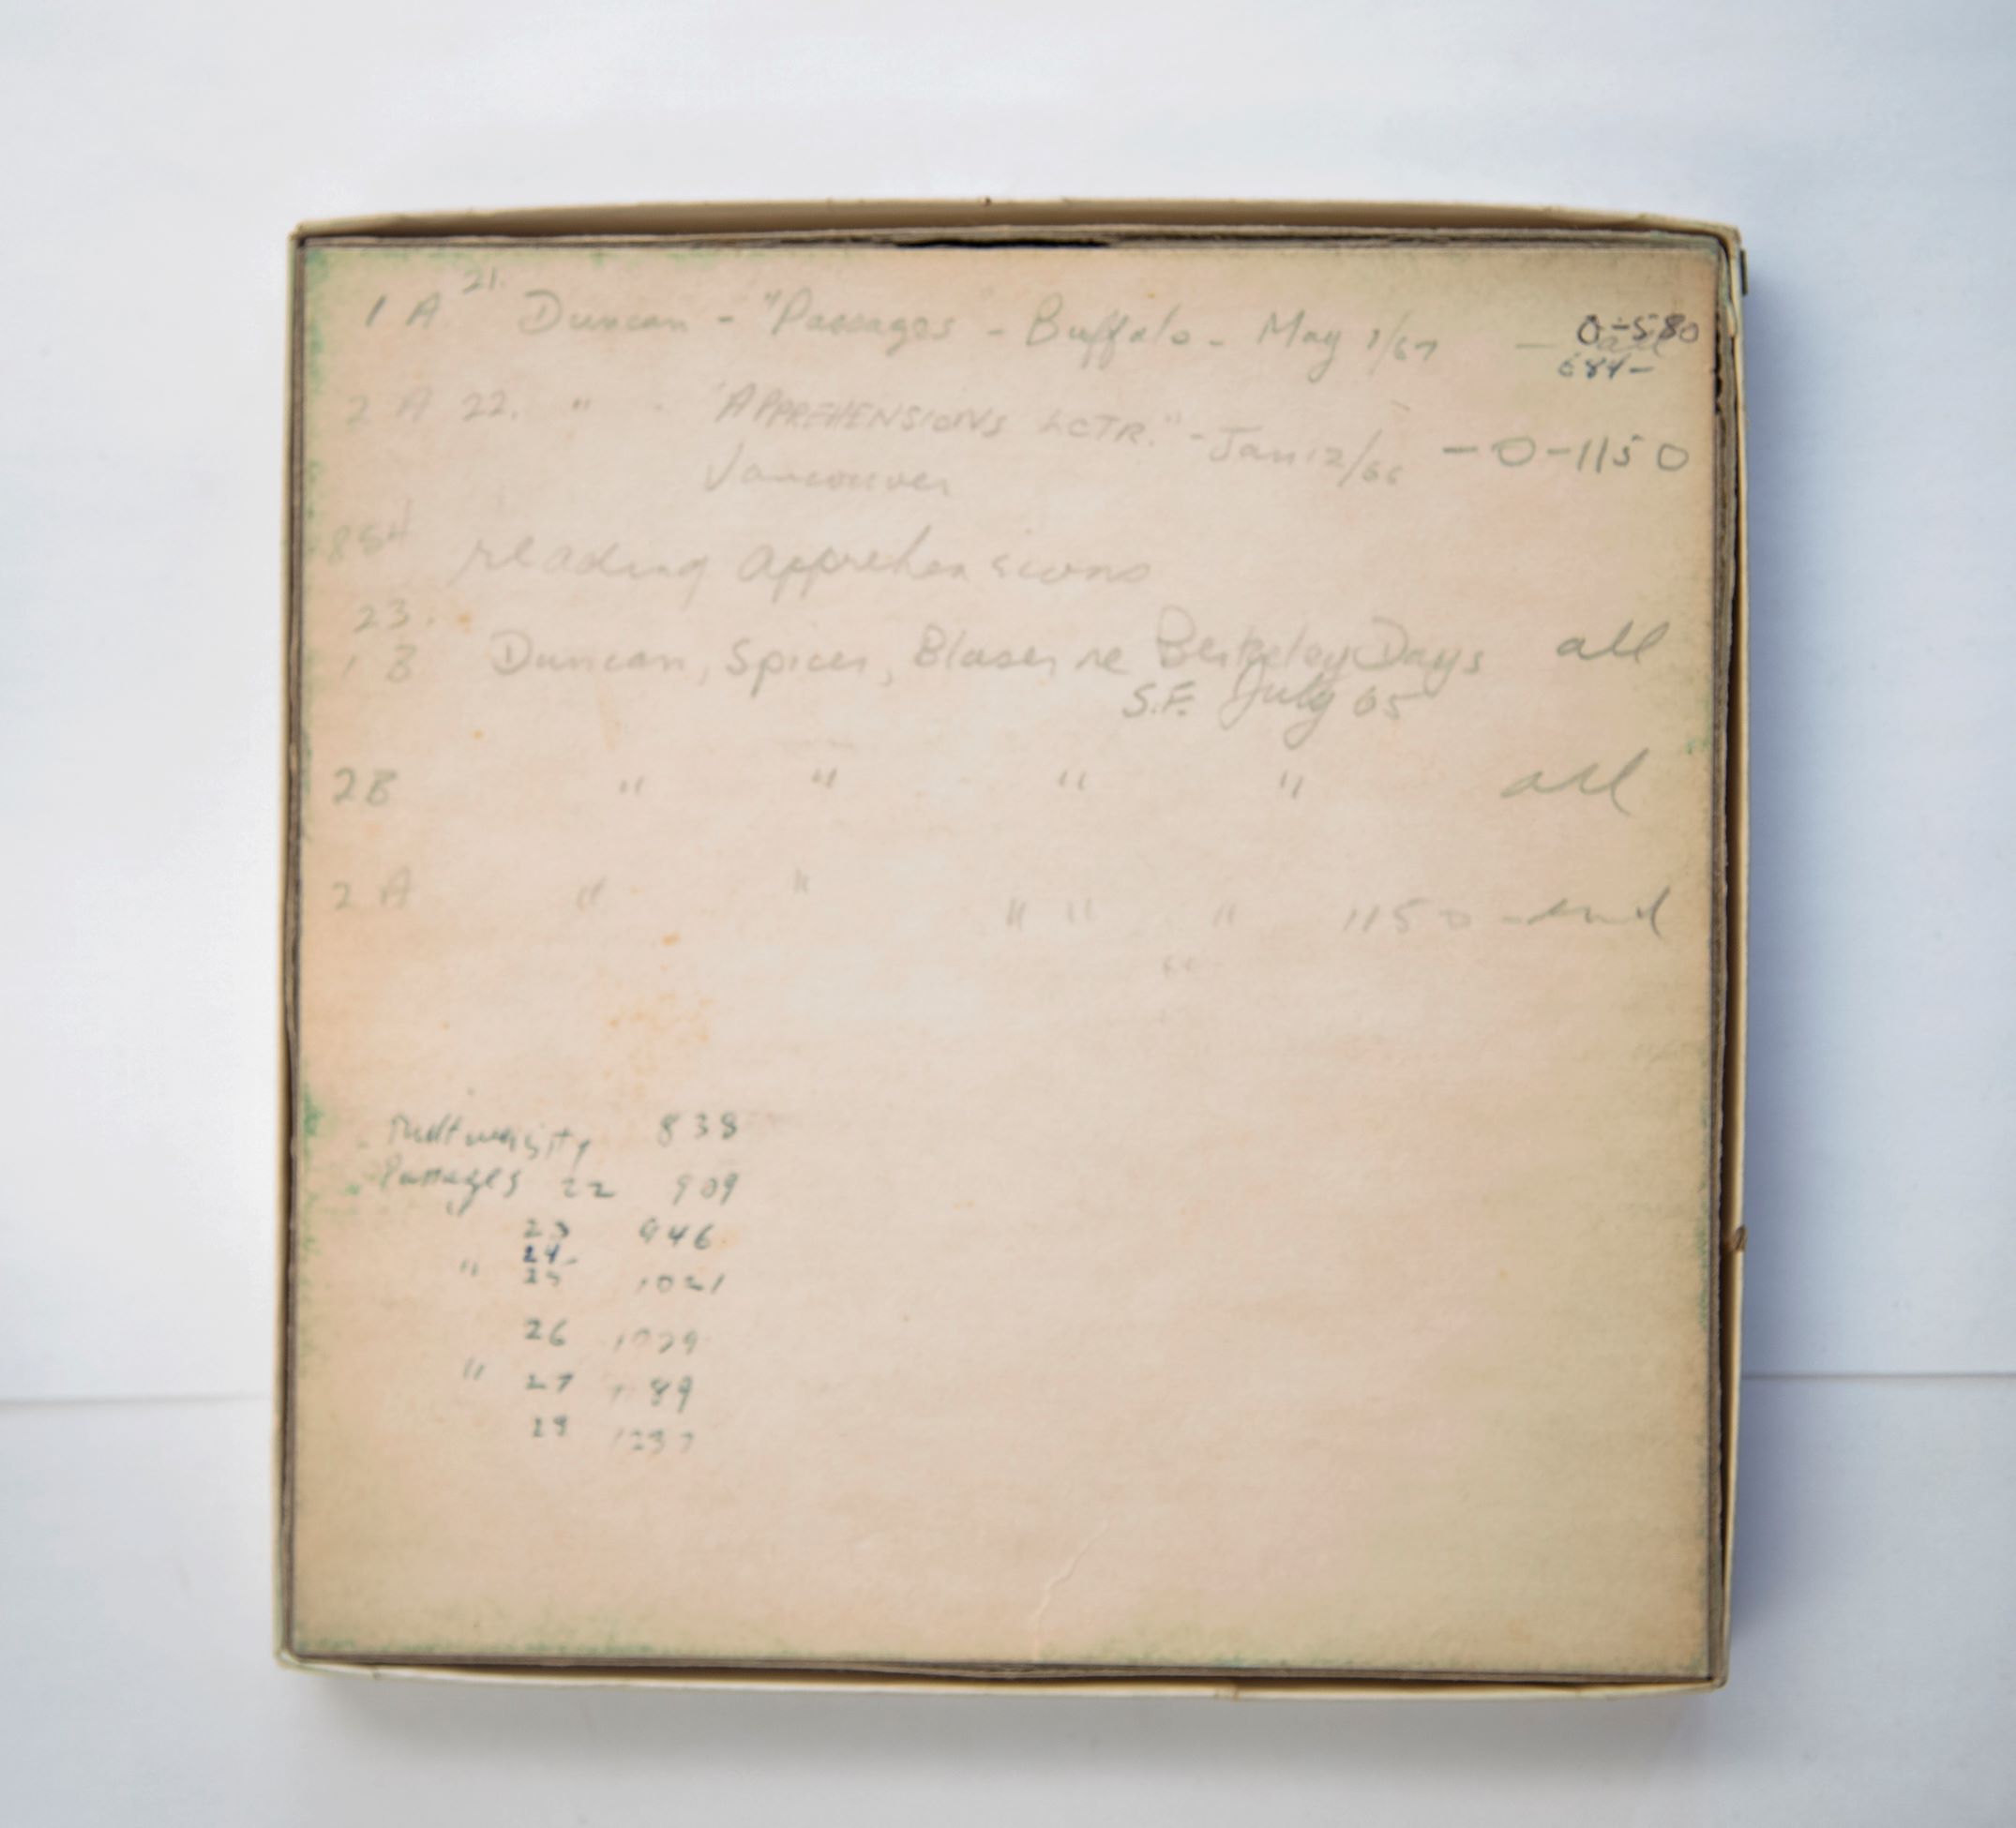 1 A 21. Duncan - "Passages - Buffalo - May 1/67 — 0-580
684-
2 A 22. " . "APPREHENSIONS LCTR." - Jan 12/66 - 0-1150
Vancouver
854 reading apprehensions
23.
1 B Duncan, Spicer, Blaser re Berkeley Days all
S.F. July 65
2B " " " " all
2 A " " " " " 1150 - end
"
Multiversity 838
Passages 22 909
" 23 946
24
" 25 1021
26
" 27
1237